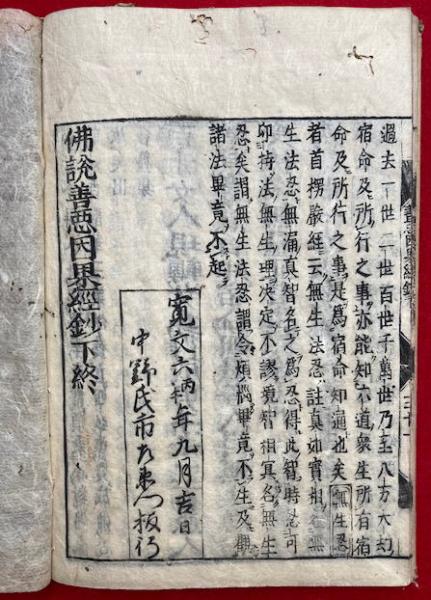 過去一世二世百世千萬世乃至八万大劫
宿命及所行之事亦能知六道衆生所有宿
命及所作之事是爲宿命知通也矣無生忍
者首楞嚴經云無生法忍註眞如實相名無
生法忍無漏眞智名之爲忍得此智時忍可
印持法無生理決定不謬境智相冥名無生
忍矣謂無生法忍謂令煩惱畢竟不生及觀
諸法畢竟不起
寛文六丙午年九月吉日
中野氏市右衛門板行
佛說善惡因果經鈔下終
善惡因果經鈔
三十一